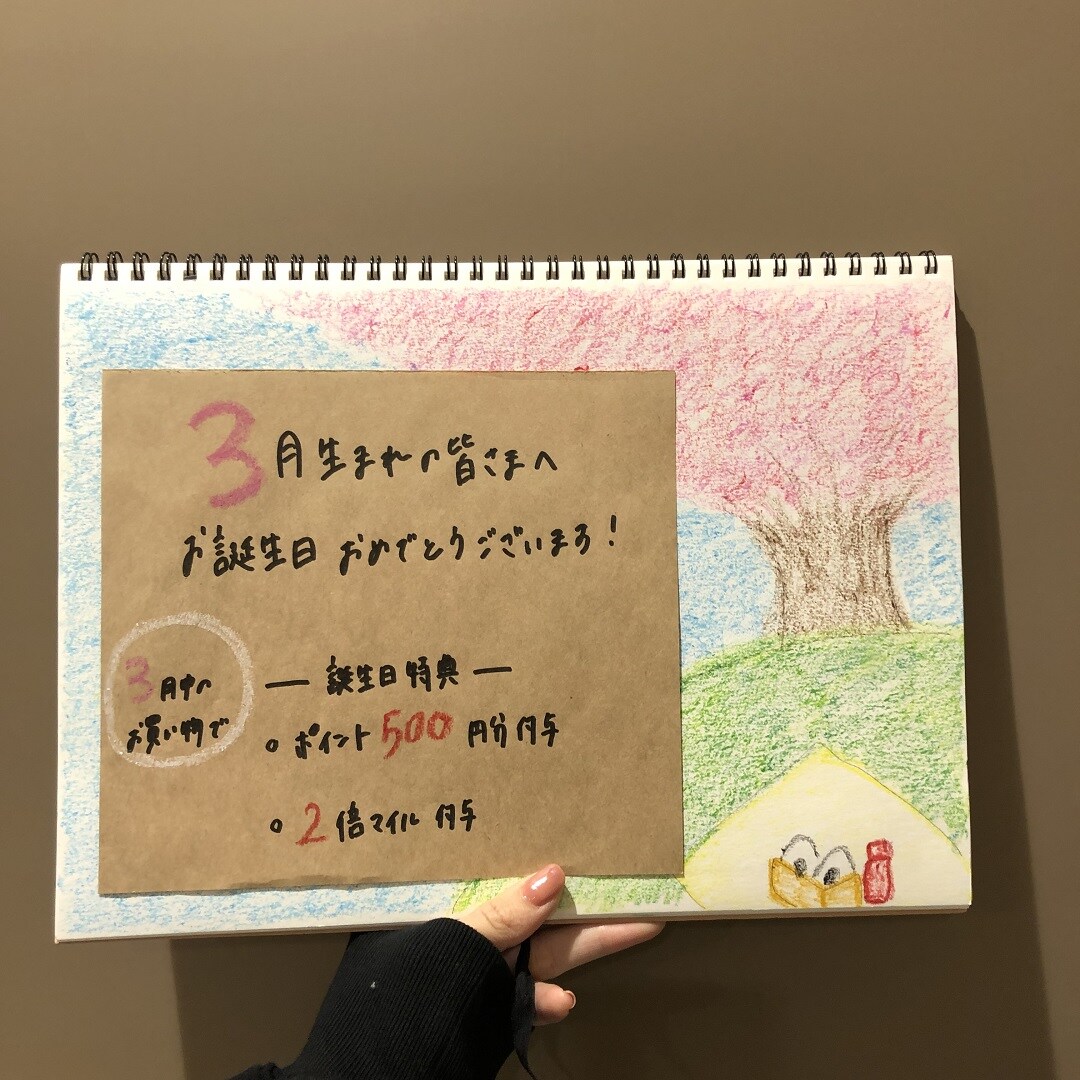 3月生まれの皆さまへ
お誕生日 おめでとうございます！
3月中の
お買い物で
— 誕生日特典 —
○ ポイント 500 円分 付与
○ 2倍マイル 付与